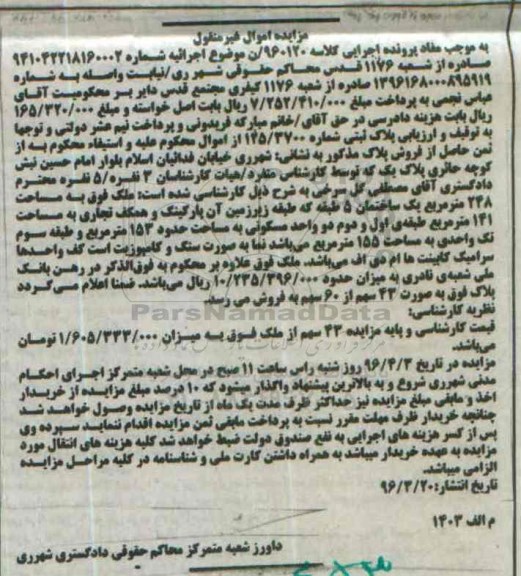 مزایده اموال غیرمنقول
به موجب مفاد پرونده اجرایی کلاسه ۹۶۰۱۲۰/ن موضوع اجرائیه شماره ۹۴۱۰۴۲۲۱۸۱۶۰۰۰۲
صادره از شعبه ۱۱۷۶ قدس محاکم حقوقی شهر ری/نیابت واصله به شماره
۱۳۹۶۱۶۸۰۰۰۸۹۵۹۱۹ صادره از شعبه ۱۱۷۶ کیفری مجتمع قدس دایر بر محکومیت آقای
عباس نجمی به پرداخت مبلغ ۷/۲۵۲/۴۱۰/۰۰۰ ریال بابت اصل خواسته و مبلغ ۱۶۵/۳۲۰/۰۰۰
ریال بابت هزینه دادرسی در حق آقای/خانم مبارکه فریدونی و پرداخت نیم عشر دولتی و توجها
به توقیف و ارزیابی پلاک ثبتی شماره ۱۴۵/۳۷۰۰ از اموال محکوم علیه و استیفاء محکوم به از
ثمن حاصل از فروش پلاک مذکور به نشانی: شهرری خیابان فدائیان اسلام بلوار امام حسین نبش
کوچه حائری پلاک یک که توسط کارشناس منفرد/هیات کارشناسان ۳ نفره/۵ نفره محترم
دادگستری آقای مصطفی گل سرخی به شرح ذیل کارشناسی شده است: ملک فوق به مساحت
۲۴۸ مترمربع یک ساختمان ۵ طبقه که طبقه زیرزمین آن پارکینگ و همکف تجاری به مساحت
۱۴۱ مترمربع طبقه‌ی اول و دوم دو واحد مسکونی به مساحت حدود ۱۵۳ مترمربع و طبقه سوم
تک واحدی به مساحت ۱۵۵ مترمربع می‌باشد نما به صورت سنگ و کامپوزیت است کف واحدها
سرامیک کابینت ها ام دی اف می‌باشد. ملک فوق علاوه بر محکوم به فوق‌الذکر در رهن بانک
ملی شعبه‌ی نادری به میزان حدود ۱۰/۲۳۵/۳۹۶/۰۰۰ ریال می‌باشد. ضمنا اعلام می‌گردد
پلاک فوق به صورت ۴۳ سهم از ۶۰ سهم به فروش می رسد.
نظریه کارشناسی:
قیمت کارشناسی و پایه مزایده ۴۳ سهم از ملک فوق به میزان ۱/۶۰۵/۳۳۳/۰۰۰ تومان
می‌باشد.
مزایده در تاریخ ۹۶/۴/۳ روز شنبه راس ساعت ۱۱ صبح در محل شعبه متمرکز اجرای احکام
مدنی شهرری شروع و به بالاترین پیشنهاد واگذار میشود که ۱۰ درصد مبلغ مزایده از خریدار
اخذ و مابقی مبلغ مزایده نیز حداکثر ظرف مدت یک ماه از تاریخ مزایده وصول خواهد شد
چنانچه خریدار ظرف مهلت مقرر نسبت به پرداخت مابقی ثمن مزایده اقدام ننماید سپرده وی
پس از کسر هزینه های اجرایی به نفع صندوق دولت ضبط خواهد شد کلیه هزینه های انتقال مورد
مزایده به عهده خریدار میباشد به همراه داشتن کارت ملی و شناسنامه در کلیه مراحل مزایده
الزامی میباشد.
تاریخ انتشار: ۹۶/۳/۲۰
م الف ۱۴۰۳
داورز شعبه متمرکز محاکم حقوقی دادگستری شهرری
ParsNamadData